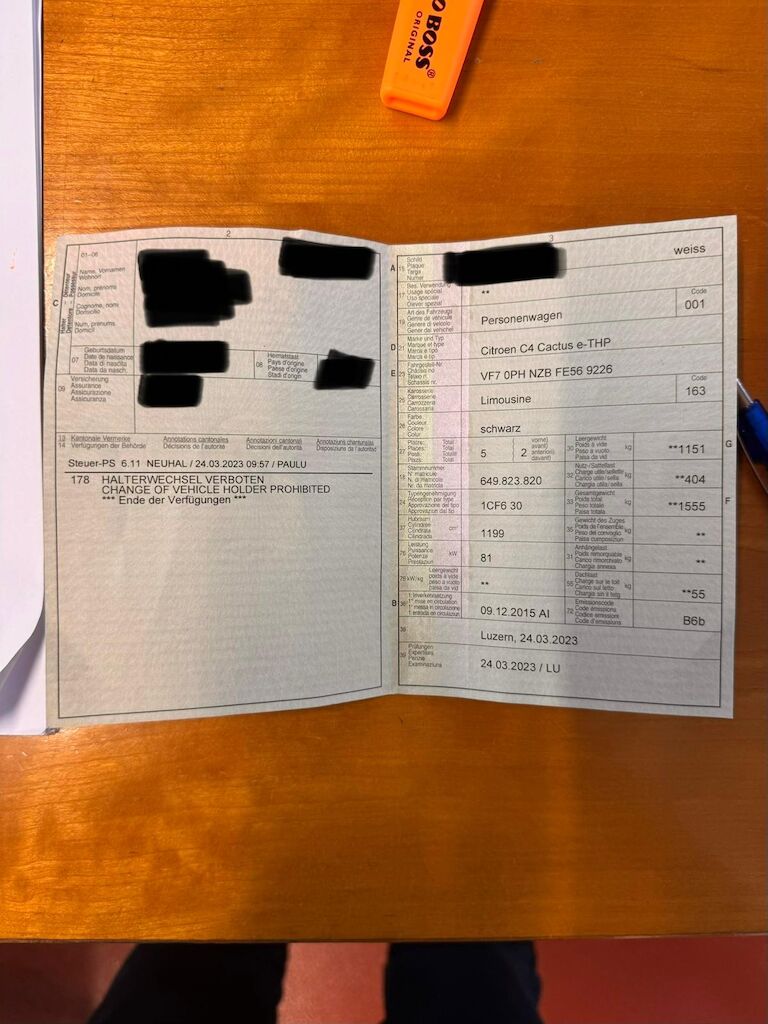 O BOSS®
ORIGINAL
2
01–06
Name, Vornamen
Wohnort
Nom, prénoms
Domicile
Cognome, nomi
Domicilio
Num, prenums
Domicil
C
Halter
Détenteur
07
Geburtsdatum
Date de naissance
Data di nascita
Data da nasch.
08
Heimatstaat
Pays d'origine
Paese d'origine
Stadi d'origin
09
Versicherung
Assurance
Assicurazione
Assicuranza
13 Kantonale Vermerke Annotations cantonales Annotazioni cantonali Annotaziuns chantunalas
14 Verfügungen der Behörde Décisions de l'autorité Decisioni dell'autorità Disposiziuns da l'autoritad
Steuer-PS 6.11 NEUHAL / 24.03.2023 09:57 / PAULU
178 HALTERWECHSEL VERBOTEN
CHANGE OF VEHICLE HOLDER PROHIBITED
*** Ende der Verfügungen ***
3
A 15
Schild
Plaque
Targa
Numer
weiss
17
Bes. Verwendung
Usage spécial
Uso speciale
Diever spezial
**
19
Art des Fahrzeugs
Genre de véhicule
Genere di veicolo
Gener dal vehichel
Personenwagen
Code
001
D 21
Marke und Typ
Marque et type
Marca e tipo
Marca e tip
Citroen C4 Cactus e-THP
E 23
Fahrgestell-Nr.
Châssis no
Telaio n.
Schassis nr.
VF7 0PH NZB FE56 9226
25
Karosserie
Carrosserie
Carrozzeria
Carossaria
Limousine
Code
163
26
Farbe
Couleur
Colore
Colur
schwarz
27
Plätze: Total
Places: Total
Posti: Totale
Plazs: Total
5
2
vorne)
avant)
anteriori)
davant)
30
Leergewicht
Poids à vide
Peso a vuoto
Paisa da vid
kg
**1151
G
18
Stammnummer
N° matricule
N. di matricola
Nr. da matricla
649.823.820
32
Nutz-/Sattellast
Charge utile/sellette
Carico utile/sella
Chargia utila/sella
kg
**404
24
Typengenehmigung
Réception par type
Approvazione del tipo
Approvaziun dal tip
1CF6 30
33
Gesamtgewicht
Poids total
Peso totale
Paisa totala
kg
**1555
F
37
Hubraum
Cylindrée
Cilindrata
Cilindrada
cm³
1199
35
Gewicht des Zuges
Poids de l'ensemble
Peso del convoglio
Paisa cumposiziun
kg
**
76
Leistung
Puissance
Potenza
Prestaziun
kW
81
31
Anhängelast
Poids remorquable
Carico rimorchiato
Chargia annexa
kg
**
78 kW/kg
Leergewicht
poids à vide
peso a vuoto
paisa da vid
**
55
Dachlast
Charge sur le toit
Carico sul tetto
Chargia sin il tetg
kg
**55
B 36
1. Inverkehrsetzung
1re mise en circulation
1a messa in circolazione
1. entrada en circulaziun
09.12.2015 AI
72
Emissionscode
Code émissions
Codice emissioni
Code d'emissiuns
B6b
38
Luzern, 24.03.2023
39
Prüfungen
Expertises
Perizie
Examinaziuns
24.03.2023 / LU